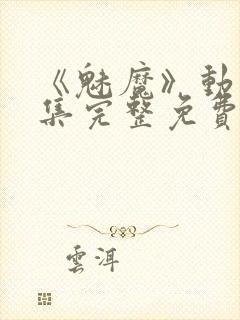 《魅魔》動
集完整免費
雲洱